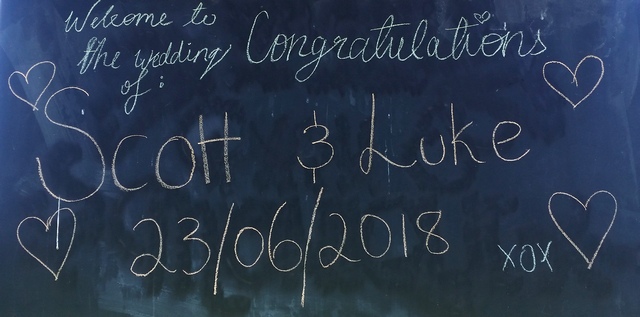 Welcome to
the wedding
of:
Congratulations
Scott & Luke
23/06/2018
xox